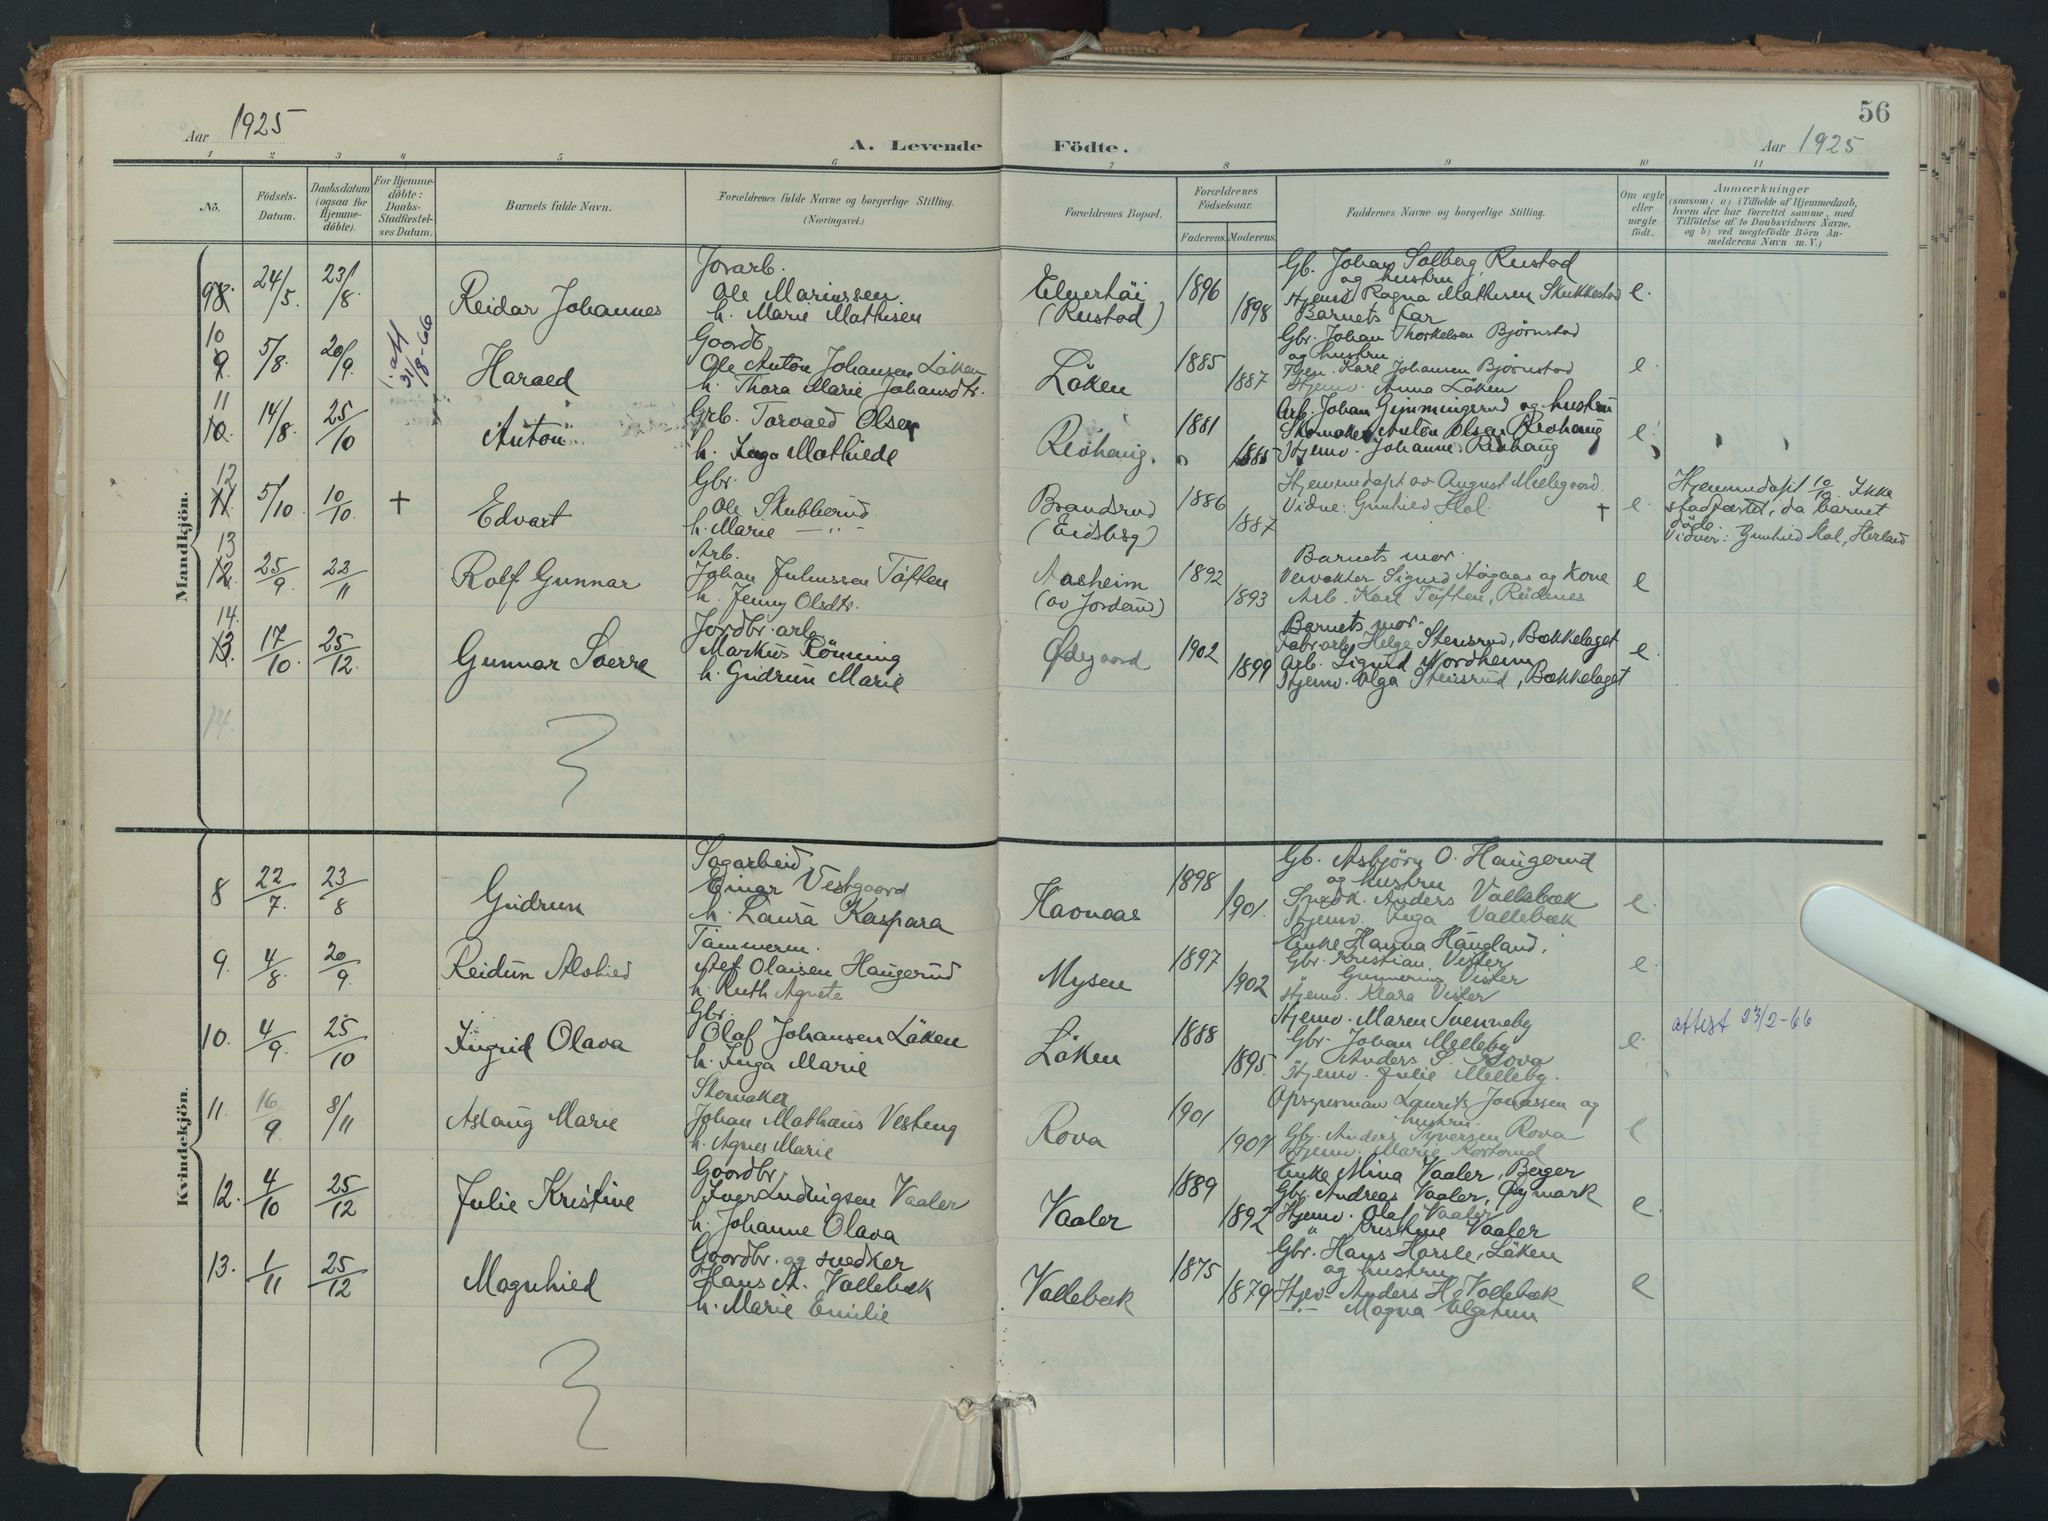 56
Aar 1925
A. Levende Födte.
Aar 1925
1 2 3 4 5 6 7 8 9 10 11
No.
Födsels-Datum.
Daabsdatum (ogsaa for Hjemmedöbte).
For Hjemmedöbte: Daabs-Stadfæstelses Datum.
Barnets fulde Navn.
Forældrenes fulde Navne og borgerlige Stilling.
(Næringsvei.)
Forældrenes Bopæl.
Forældrenes Födselsaar.
Faderens. Moderens.
Faddernes Navne og borgerlige Stilling.
Om ægte eller uægte födt.
Anmærkninger
(saasom: a) i Tilfælde af Hjemmedaab,
hvem der har forrettet samme, med
Tilföielse af to Daabsvidners Navne,
og b) ved uægtefödte Börn Anmelderens Navn m. V.)
Mandkjön.
98. 24/5. 23/8. Reidar Johannes
Jorarb.
Ole Mariussen
h. Marie Mathisen
(Rustad)
1896
1898
Gb. Johan Solberg, Rustad
og hustru
Hjemv. Ragna Mathisen
Barnets far
e.
10
9 5/8. 20/9 1. att 31/8-66 Harald
Gaardb.
Ole Anton Johansen Löken
h. Thora Marie Johansdtr.
Löken
1885
1887
Gbr. Johan Thorkelsen Björnstad
og hustru
Tjen. Karl Johansen Björnstad
Hjemv. Anna Löken
e.
11
10. 14/8. 25/10 Anton
Grb. Torvald Olsen
h. Inga Mathilde
Rödhaug.
1881
1885
Arb. Johan Gimmingsrud og hustru
Skomaker Anton Olsen Rödhaug
Hjemv. Johanne Rödhaug
e.
12
11. 5/10 10/10 + Edvart
Gbr.
Ole Skubberud
h. Marie —"—
Brandsrud
(Eidsbg)
1886
1887
Hjemmedöpt av August Mellegaard.
Vidne: Gunhild Hol. +
e.
Hjemmedöpt 10/10. Ikke
stadfæstet, da barnet
döde.
Vidner: Gunhild Hol, Herland
13
12. 25/9 22/11 Rolf Gunnar
Arb.
Johan Juliussen Töften
h. Jenny Olsdtr.
Aasheim
(av Jorderud)
1892
1893
Barnets mor.
Veivokter Sigurd Högaas og Kone
Arb. Karl Töften, Rödenes
e
14.
13. 17/10. 25/12. Gunnar Sverre
Jordbr. arb.
Markus Rönning
h. Gudrun Marie
Ödegaard
1902
1899
Barnets mor.
Fabr.arb. Helge Stensrud, Bækkelaget
Arb. Sigurd Nordheim
Hjemv. Olga Stensrud, Bækkelaget
e.
14.
Kvindekjön.
8 22/7. 23/8 Gudrun
Sagarbeid.
Einar Vestgaard
h. Laura Kaspara
Havnaas
1898
1901.
Gb. Asbjörn O. Haugerud
og hustru
Snedk. Anders Vallebæk
Hjemv. Inga Vallebæk
e.
9. 4/8. 20/9. Reidun Alvhild
Tömmerm.
Alf Olaisen Haugerud
h. Ruth Agnete
Mysen
1897
1902
Enke Hanna Haugland.
Gbr. Kristian Visler
" Gunnerius Visler
Hjemv. Klara Visler
e.
10. 4/9. 25/10 Ingrid Olava
Gbr.
Olaf Johansen Löken
h. Inga Marie
Löken
1888
1895.
Hjemv. Maren Svenneby
Gbr. Johan Melleby
Anders S. Rova
Hjemv. Julie Melleby.
e.
attest 23/2-66
11. 16/9. 8/11 Aslaug Marie
Skomaker
Johan Mathæus Vesteng
h. Agnes Marie
Rova
1901
1904
Opsynsman Laurits Jonassen og
hustru.
Gbr. Anders Syversen Rova
Hjemv. Marie
e
12. 4/10 25/12 Julie Kristine
Gaardbr.
Iver Ludvigsen Vaaler
h. Johanne Olava
Vaaler
1889
1892
Enke Mina Vaaler, Berger
Gbr. Andreas Vaaler, Öymark
Hjemv. Olaf Vaaler
" Kristine Vaaler
e.
13. 1/11 25/12 Magnhild
Gaardbr. og snedker
Hans A. Vallebæk
h. Marie Emilie
Vallebæk
1875
1879
Gbr. Hans Harsle, Löken
og hustru
Hjev. Anders H. Vallebæk
—"— Magna
e